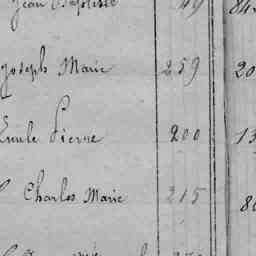 Jean Baptiste 49 84
Joseph Marie 259 20
Emile Pierre 200 13
Charles Marie 215 8